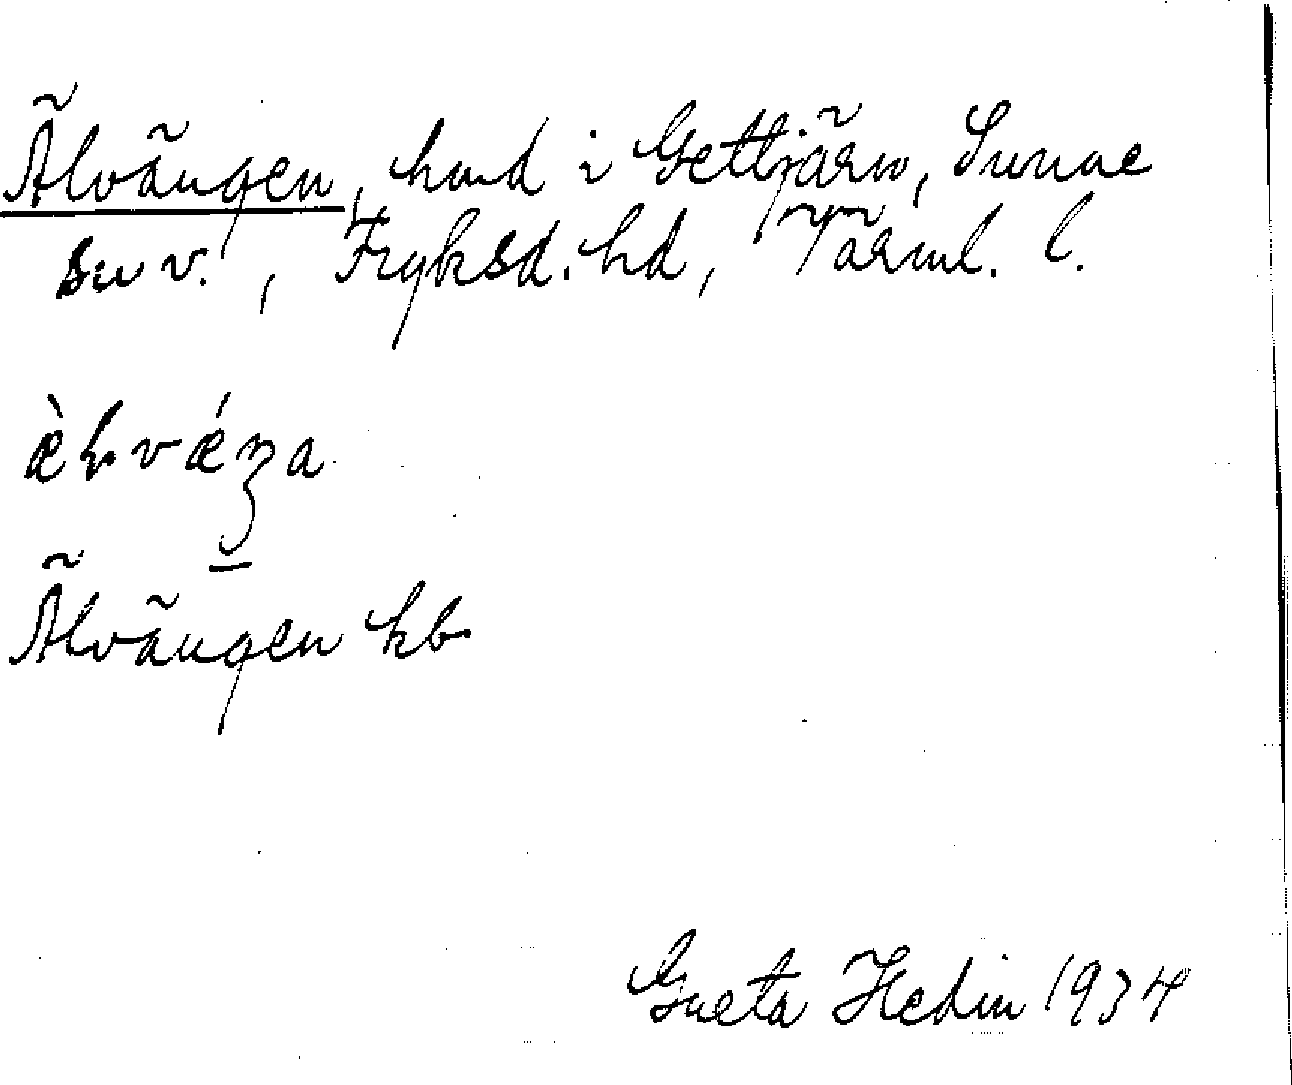 Älvängen, hmd i Gettjärn, Sunne
sn v., Fryksd. hd, Värml. l.
æ̀ɫvǽŋa
Älvängen kb
Greta Hedin 1934